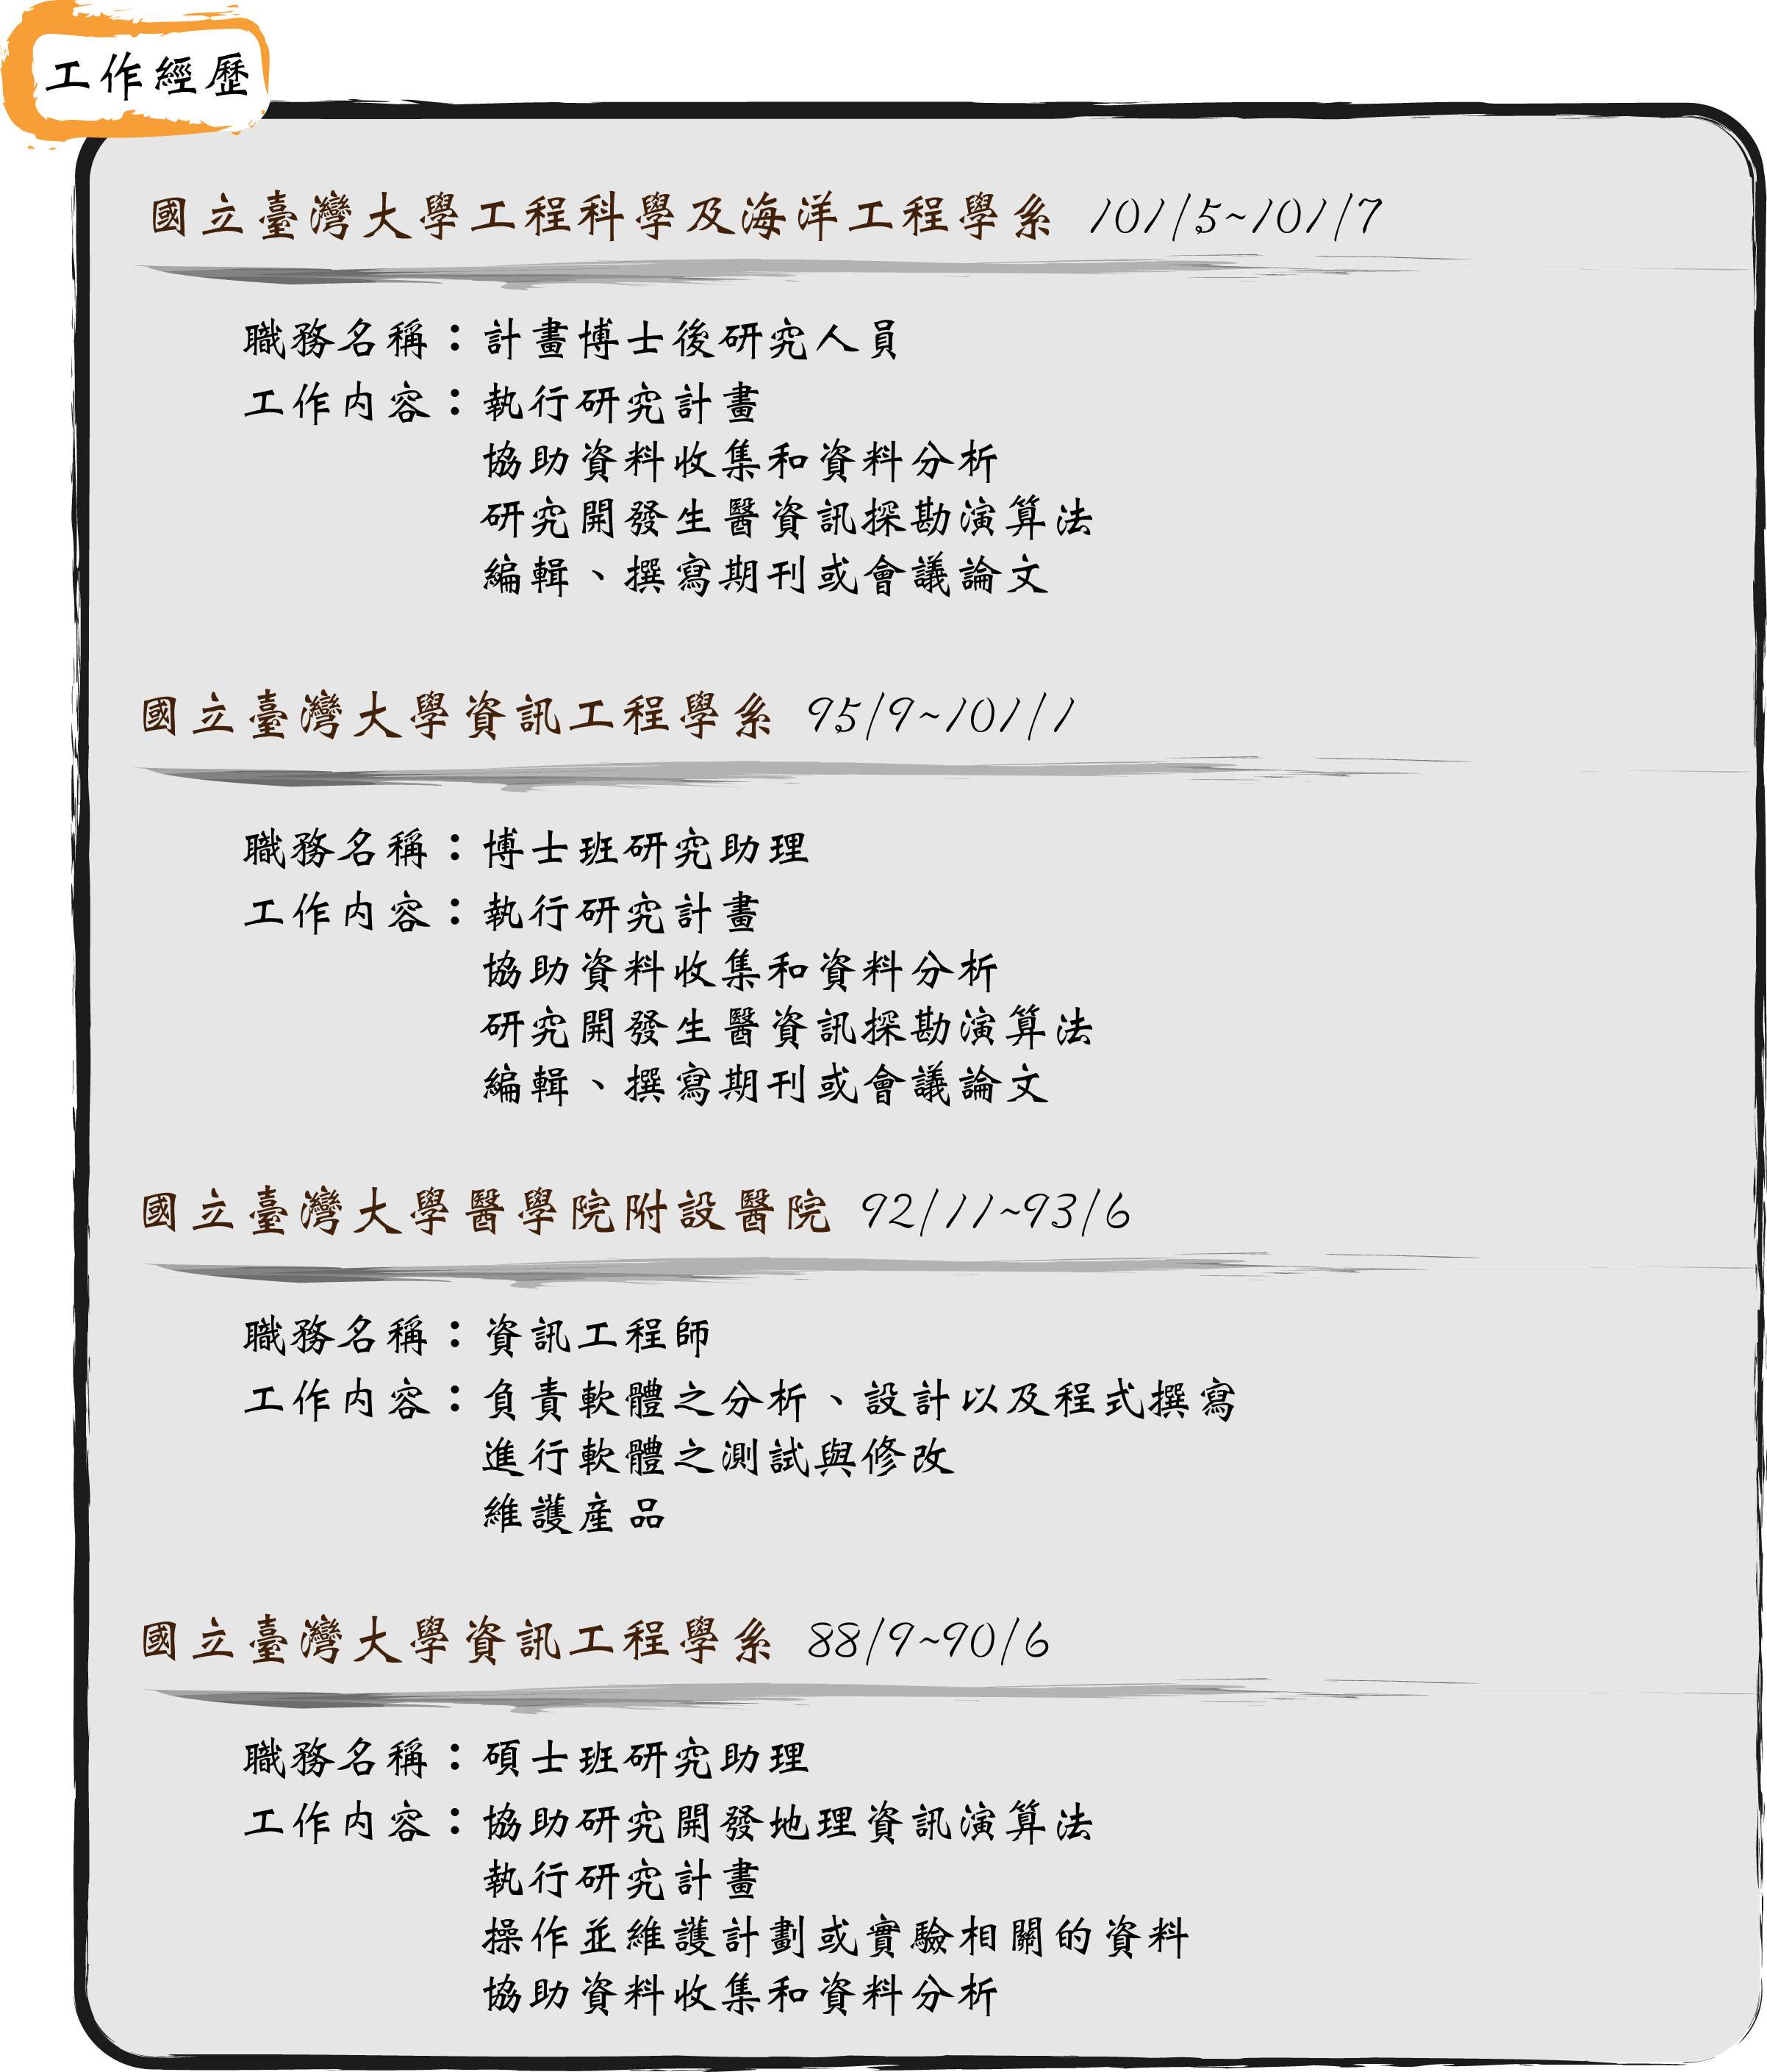 工作經歷
國立臺灣大學工程科學及海洋工程學系 101/5~101/7
職務名稱：計畫博士後研究人員
工作內容：執行研究計畫
協助資料收集和資料分析
研究開發生醫資訊探勘演算法
編輯、撰寫期刊或會議論文
國立臺灣大學資訊工程學系 95/9~101/1
職務名稱：博士班研究助理
工作內容：執行研究計畫
協助資料收集和資料分析
研究開發生醫資訊探勘演算法
編輯、撰寫期刊或會議論文
國立臺灣大學醫學院附設醫院 92/11~93/6
職務名稱：資訊工程師
工作內容：負責軟體之分析、設計以及程式撰寫
進行軟體之測試與修改
維護產品
國立臺灣大學資訊工程學系 88/9~90/6
職務名稱：碩士班研究助理
工作內容：協助研究開發地理資訊演算法
執行研究計畫
操作並維護計劃或實驗相關的資料
協助資料收集和資料分析